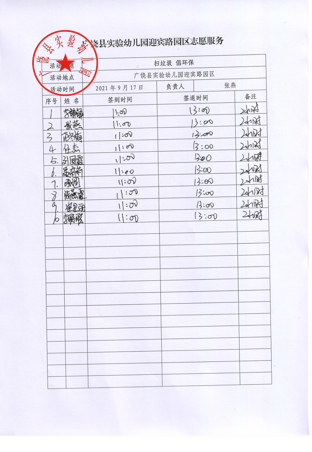 广饶县实验幼儿园迎宾路园区志愿服务
扫垃圾 倡环保
活动地点 广饶县实验幼儿园迎宾路园区
活动时间 2021年9月17日 负责人 张燕
序号 姓名 签到时间 签退时间 备注
1 11:00 13:00 2小时
2 11:00 13:00 2小时
3 11:00 13:00 2小时
4 11:00 13:00 2小时
5 11:00 13:00 2小时
6 11:00 13:00 2小时
7 11:00 13:00 2小时
8 11:00 13:00 2小时
9 11:00 13:00 2小时
10 11:00 13:00 2小时